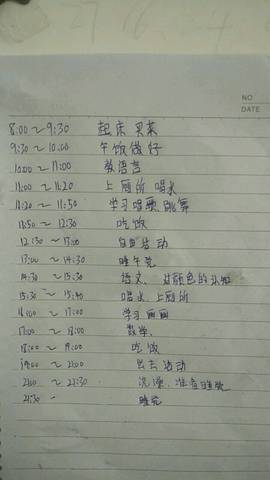 NO
DATE
8:00~9:30 起床 买菜
9:30~10:00 午饭做好
10:00~11:00 教语言
11:00~11:20 上厕所 喝水
11:20~11:50 学习唱歌 跳舞
11:50~12:30 吃饭
12:30~13:00 自由活动
13:00~14:30 睡午觉
14:30~15:30 语文、对颜色的认知
15:30~15:40 喝水 上厕所
16:00~17:00 学习画画
17:00~18:00 数学、
18:00~19:00 吃饭
19:00~21:00 出去活动
21:00~21:30 洗澡、准备睡觉
21:30 - 睡觉